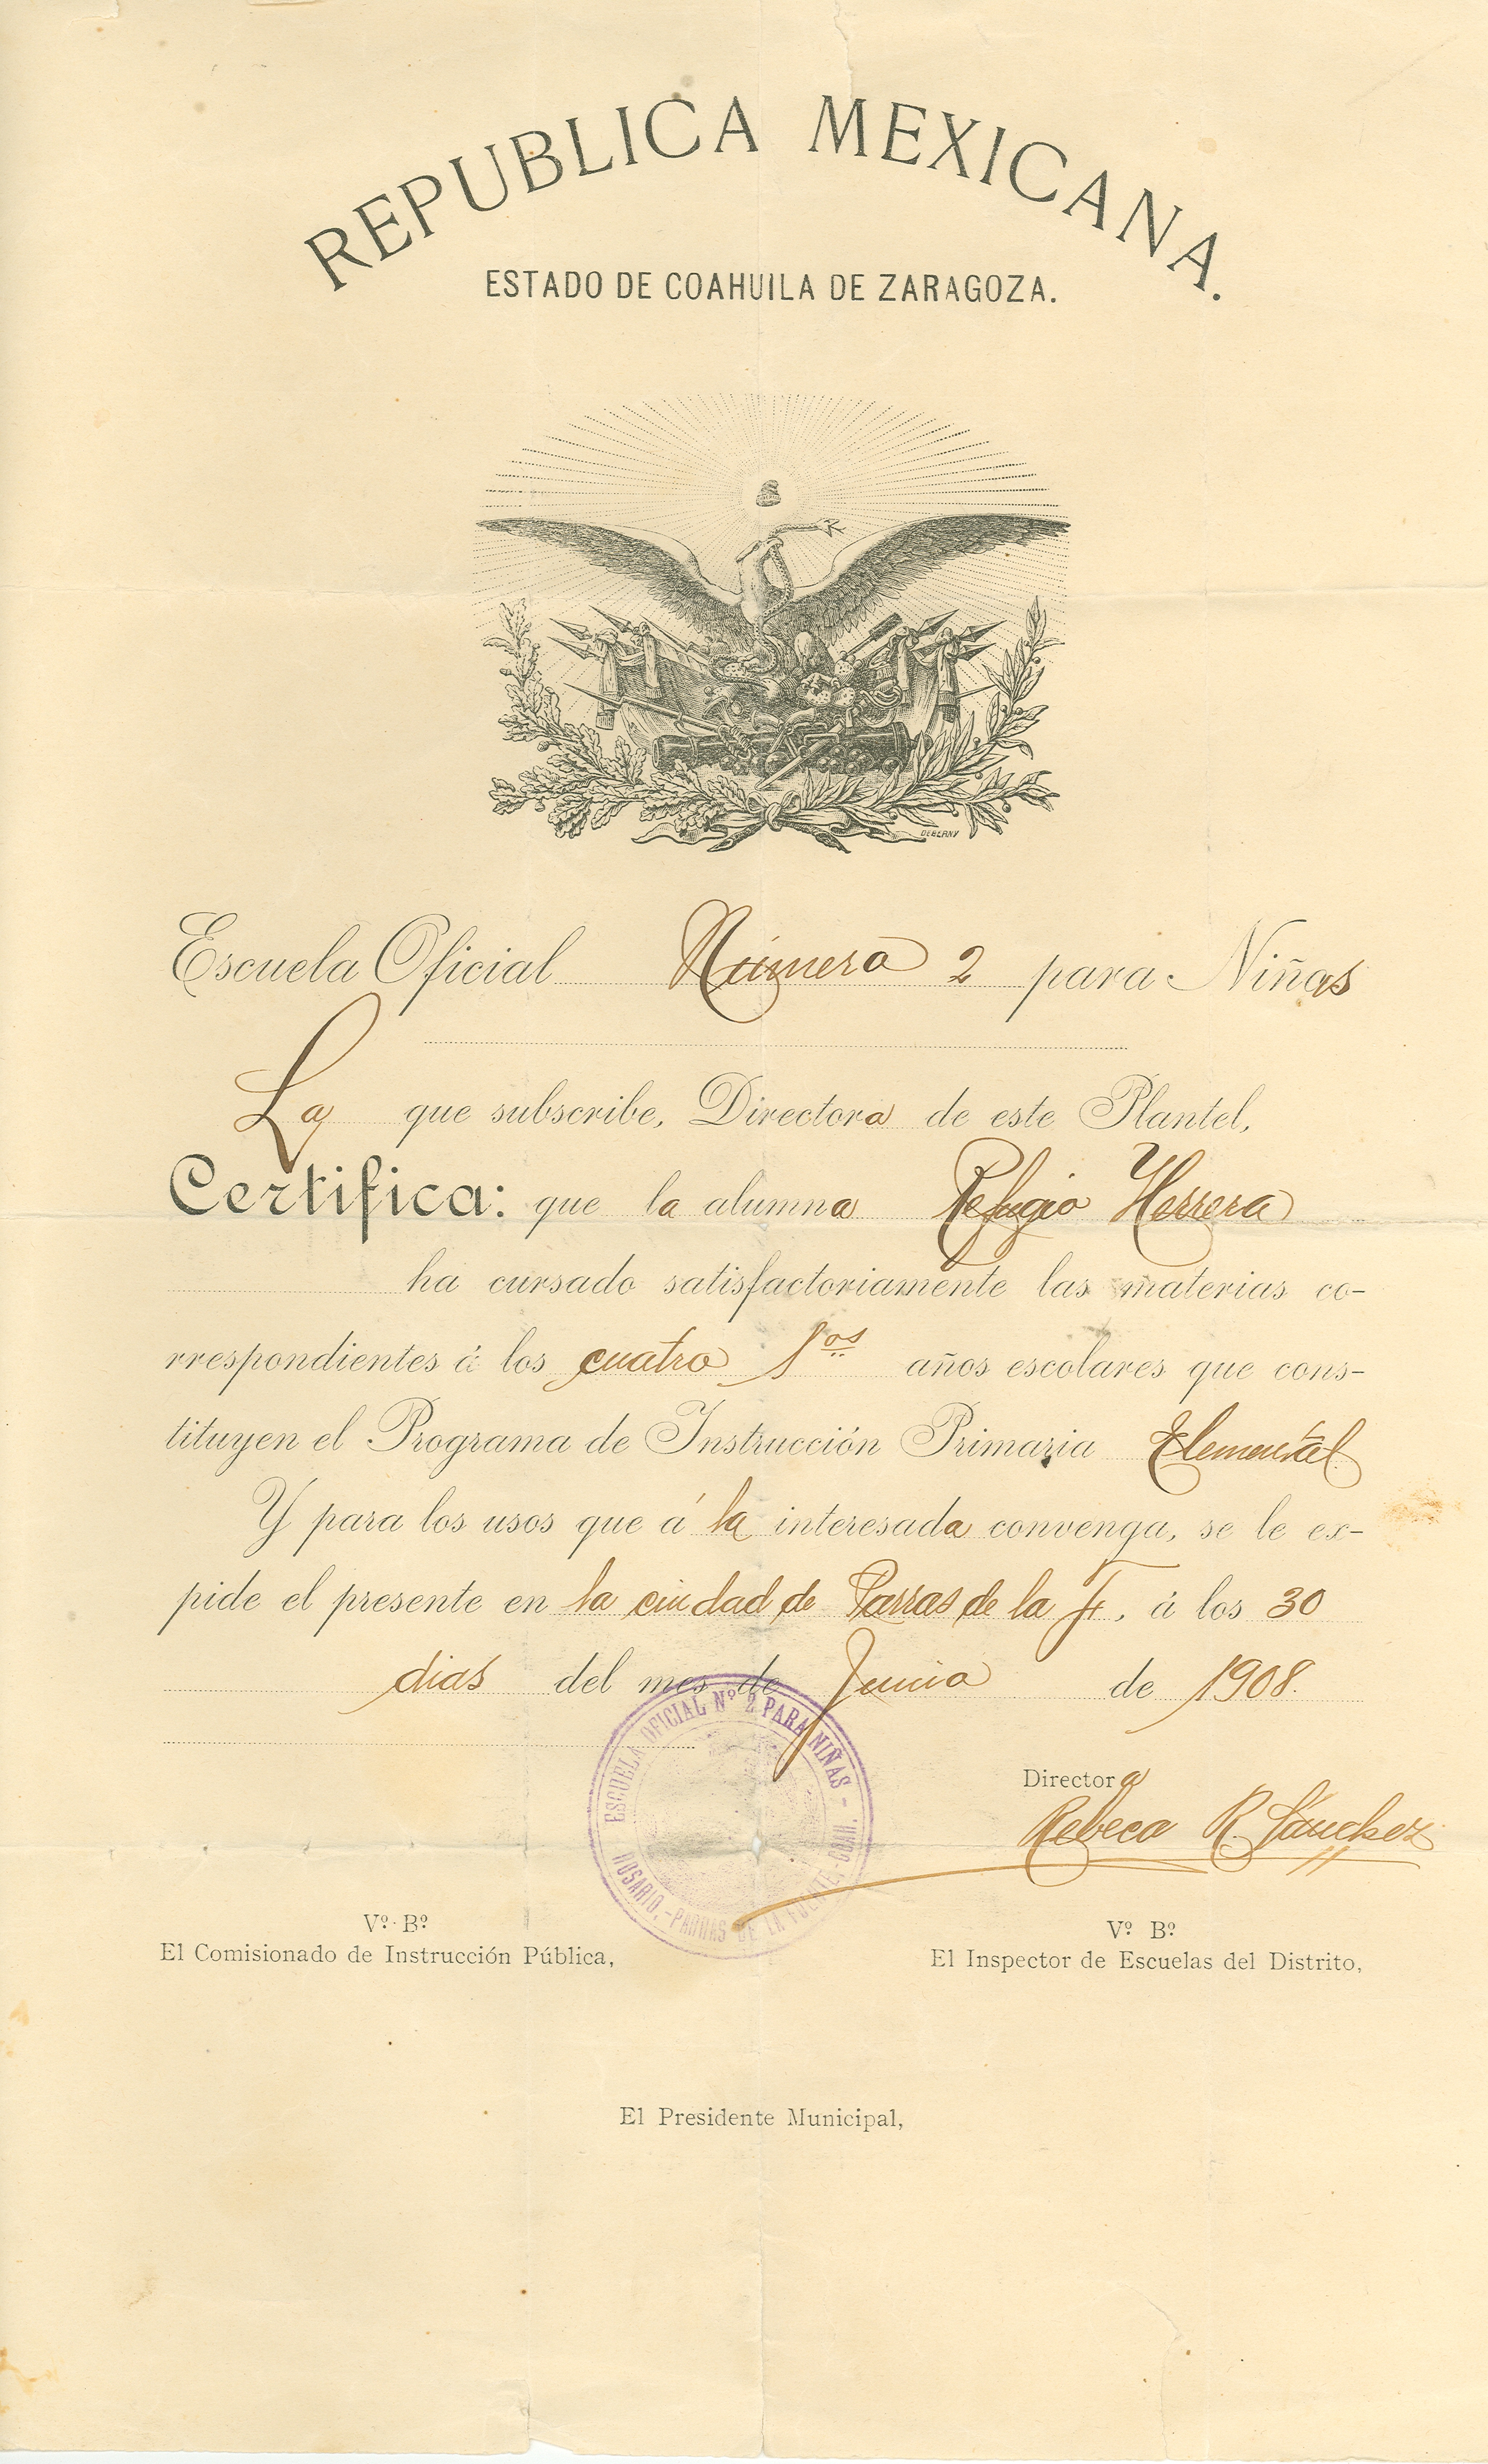 REPUBLICA MEXICANA.
ESTADO DE COAHUILA DE ZARAGOZA.
DEBERNY
Escuela Oficial Número 2 para Niñas
La que subscribe, Directora de este Plantel,
Certifica: que la alumna Refugio Herrera
ha cursado satisfactoriamente las materias co-
rrespondientes á los cuatro 1os años escolares que cons-
tituyen el Programa de Instrucción Primaria Elemental
Y para los usos que á la interesada convenga, se le ex-
pide el presente en la ciudad de Parras de la F., á los 30
dias del mes de Junio de 1908.
ESCUELA OFICIAL Nº 2 PARA NIÑAS -
ROSARIO.-PARRAS DE LA FUENTE, COAH.
Directora
Rebeca R. Sánchez
Vº. Bº
El Comisionado de Instrucción Pública,
Vº Bº
El Inspector de Escuelas del Distrito,
El Presidente Municipal,